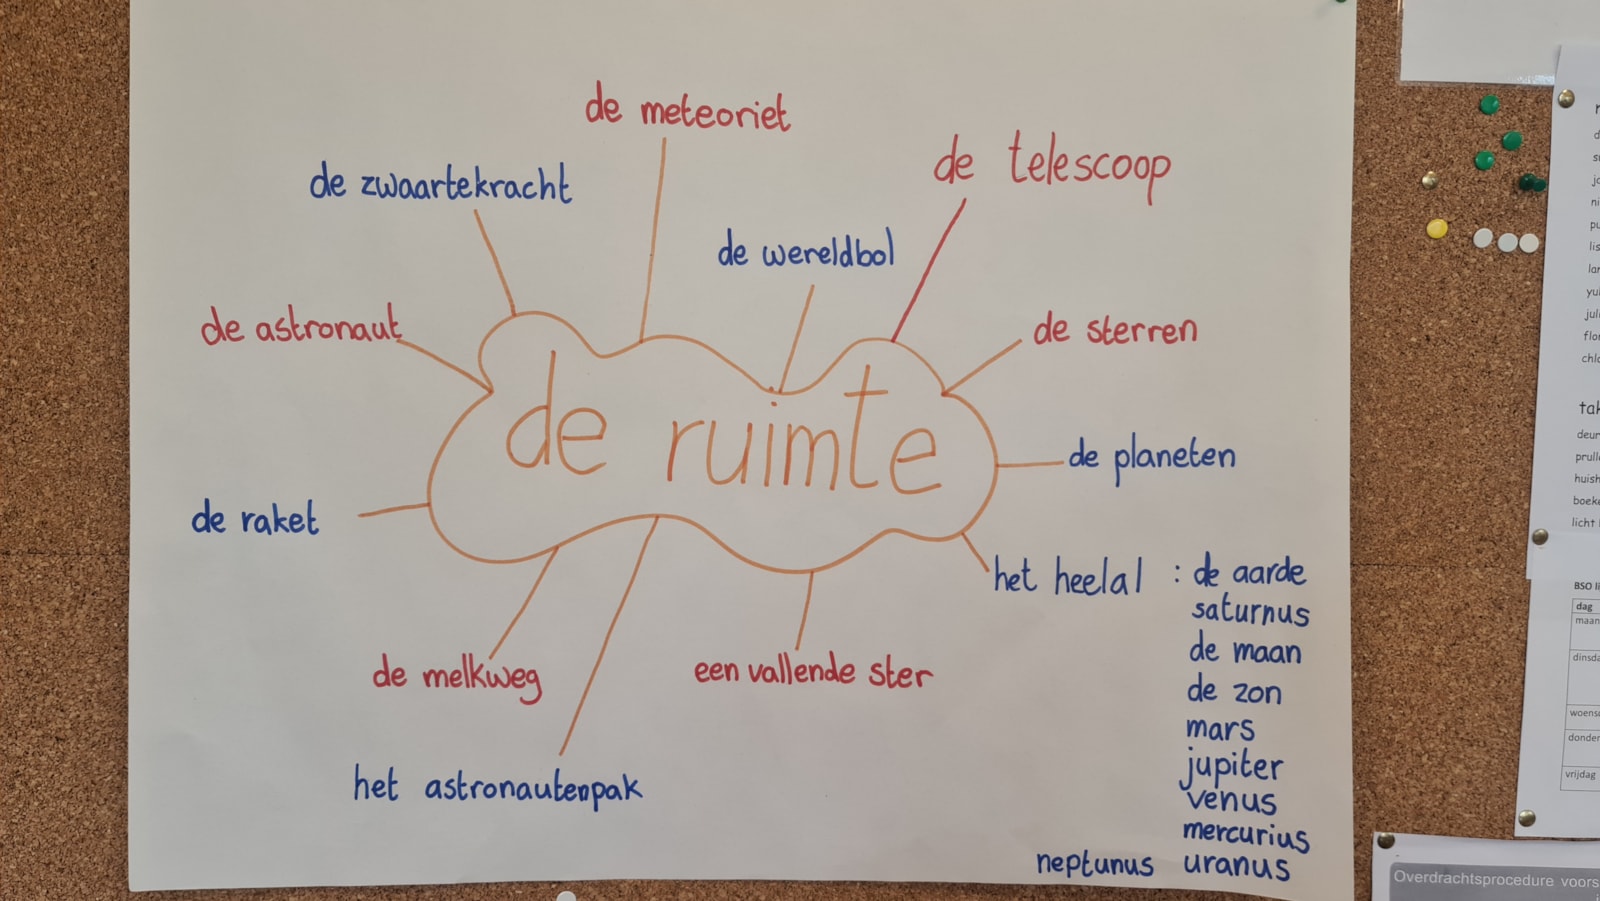 de meteoriet
de telescoop
de zwaartekracht
de wereldbol
de astronaut
de sterren
de ruimte
de planeten
de raket
het heelal : de aarde
saturnus
de maan
de zon
mars
jupiter
venus
mercurius
neptunus uranus
de melkweg
een vallende ster
het astronautenpak
tak
licht
BSO
dag
Overdrachtsprocedure voors